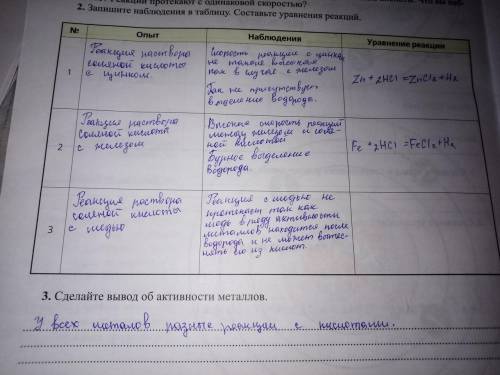 Реакции протекают с одинаковой скоростью?
2. Запишите наблюдения в таблицу. Составьте уравнения реакций.
№ Опыт Наблюдения Уравнение реакции
1
Реакция раствора
соляной кислоты
с цинком.
Скорость реакции с цинком
не такая высокая
как в случае с железом
Так же присутствует
выделение водорода.
Zn + 2HCl = ZnCl2 + H2
2
Реакция раствора
соляной кислоты
с железом
Высокая скорость реакции
между железом и соля-
ной кислотой
Бурное выделение
водорода.
Fe + 2HCl = FeCl2 + H2
3
Реакция раствора
соляной кислоты
с медью
Реакция с медью не
протекает так как
медь в ряду активности
металлов находится после
водорода и не может вытес-
нять его из кислот.
3. Сделайте вывод об активности металлов.
У всех металов разные реакции с кислотами.